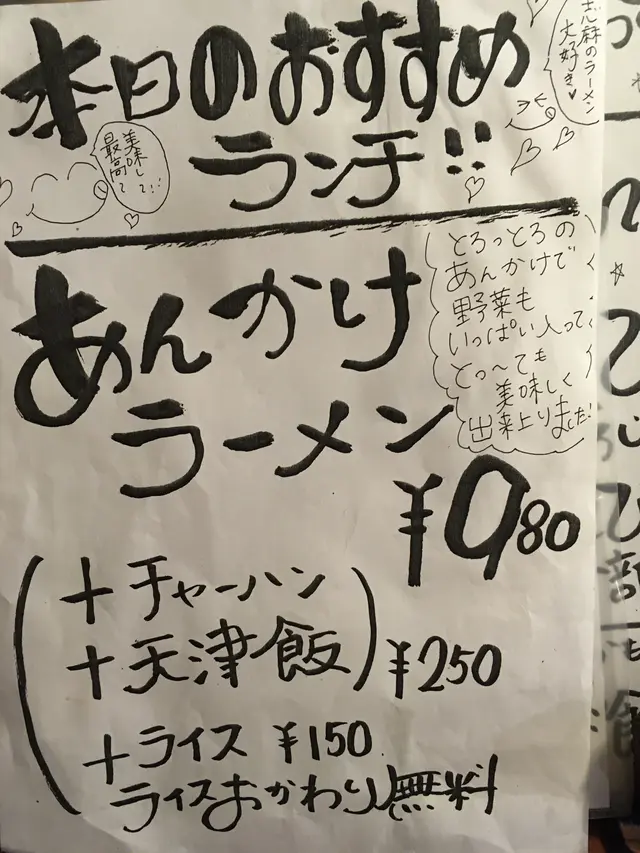 本日のおすすめ
ランチ!!
志麻のラーメン
大好き♥
美味しくて!!
最高〜
あんかけ
ラーメン
とろっとろの
あんかけで
野菜も
いっぱい入って、
とっ〜ても
美味しく
出来上りました!
¥980
+チャーハン
+天津飯
¥250
+ライス ¥150
ライスおかわり無料